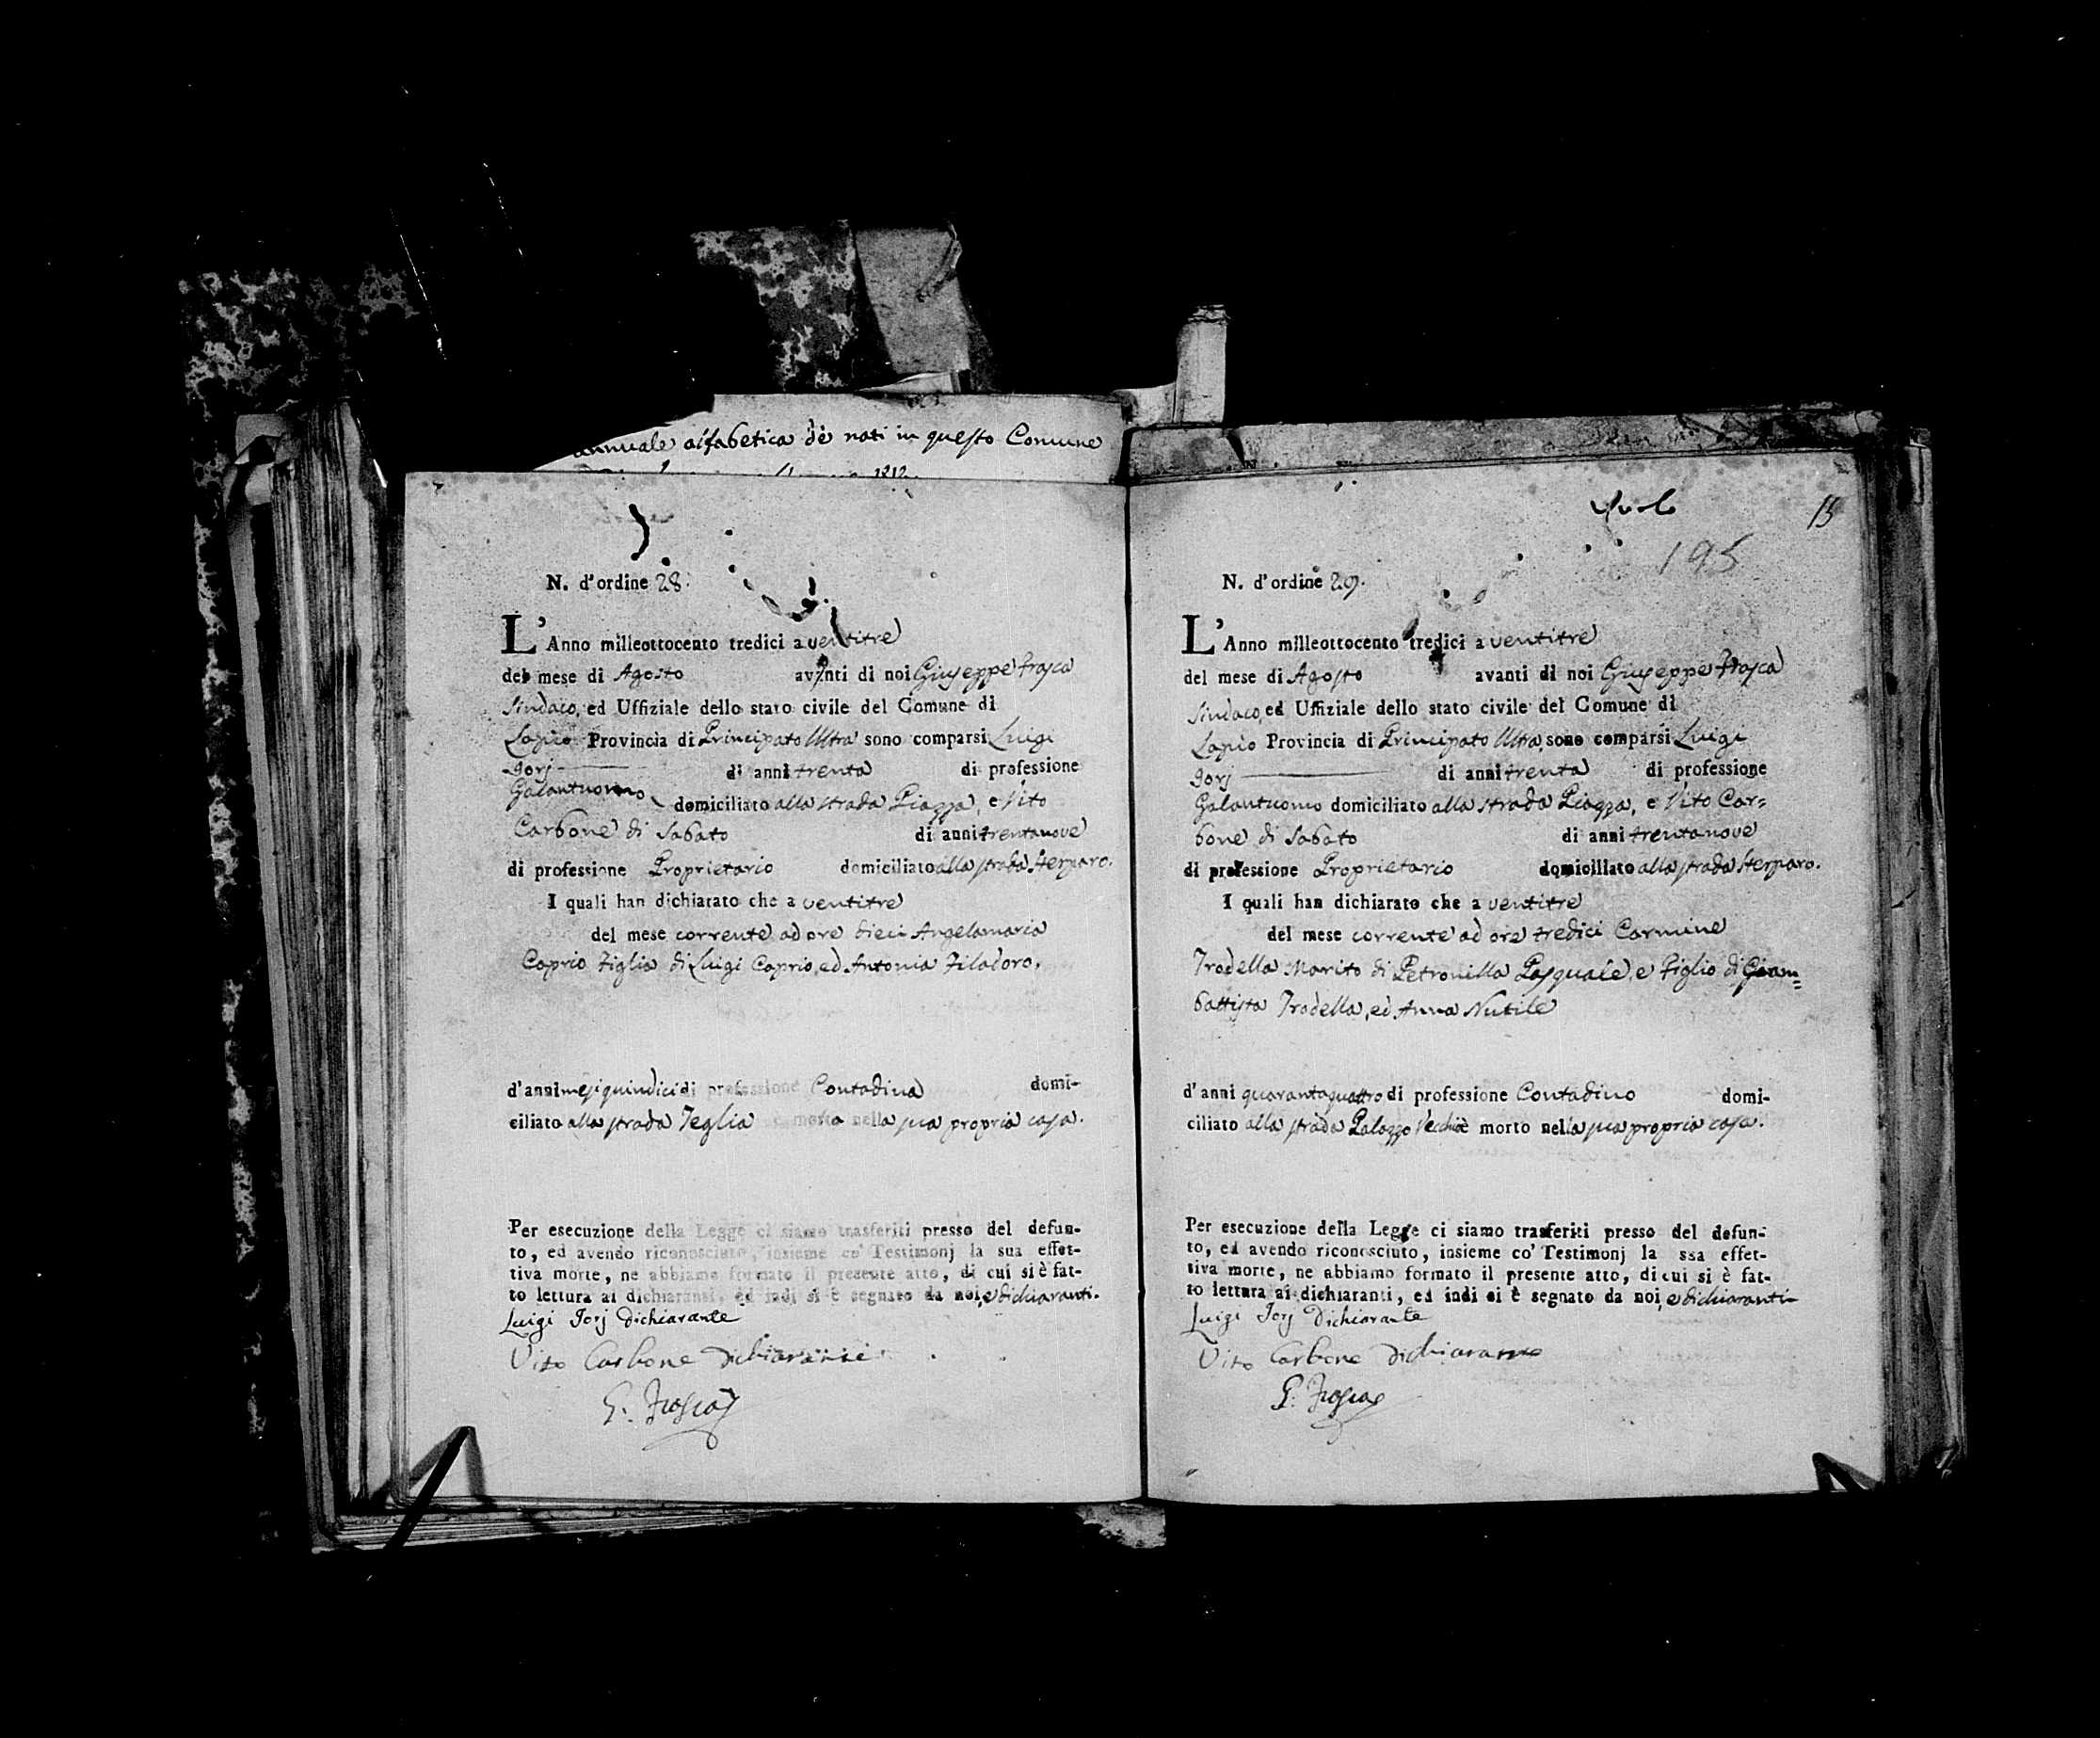 annuale alfabetica de nati in questo Comune
N. d'ordine 28.
L'Anno milleottocento tredici a ventitre
del mese di Agosto avanti di noi Giuseppe Frasca
Sindaco, ed Uffiziale dello stato civile del Comune di
Lapio Provincia di Principato Ultra sono comparsi Luigi
Iorj di anni trenta di professione
Galantuomo domiciliato alla strada Piazza, e Vito
Carbone di Sabato di anni trentanove
di professione Proprietario domiciliato alla strada Sterparo.
I quali han dichiarato che a ventitre
del mese corrente ad ore dieci Angelamaria
Caprio Figlia di Luigi Caprio, ed Antonia Filadoro.
d'anni mesi quindici di professione Contadina domi-
ciliato alla strada Teglia è morto nella sua propria casa.
Per esecuzione della Legge ci siamo trasferiti presso del defun-
to, ed avendo riconosciuto, insieme co' Testimonj la sua effet-
tiva morte, ne abbiamo formato il presente atto, di cui si è fat-
to lettura ai dichiaranti, ed indi si è segnato da noi, e dichiaranti.
Luigi Iorj Dichiarante
Vito Carbone Dichiarante
G. Frasca
15
195
N. d'ordine 29.
L'Anno milleottocento tredici a ventitre
del mese di Agosto avanti di noi Giuseppe Frasca
Sindaco, ed Uffiziale dello stato civile del Comune di
Lapio Provincia di Principato Ultra, sono comparsi Luigi
Iorj di anni trenta di professione
Galantuomo domiciliato alla strada Piazza, e Vito Car=
bone di Sabato di anni trentanove
di professione Proprietario domiciliato alla strada Sterparo.
I quali han dichiarato che a ventitre
del mese corrente ad ore tredici Carmine
Trodella Marito di Petronilla Pasquale, e Figlio di Giam=
battista Trodella, ed Anna Nutile
d'anni quarantaquattro di professione Contadino domi-
ciliato alla strada Palazzo Vecchio è morto nella sua propria casa.
Per esecuzione della Legge ci siamo trasferiti presso del defun-
to, ed avendo riconosciuto, insieme co' Testimonj la ssa effet-
tiva morte, ne abbiamo formato il presente atto, di cui si è fat-
to lettura ai dichiaranti, ed indi si è segnato da noi, e dichiaranti
Luigi Iorj Dichiarante
Vito Carbone Dichiarante
G. Frasca